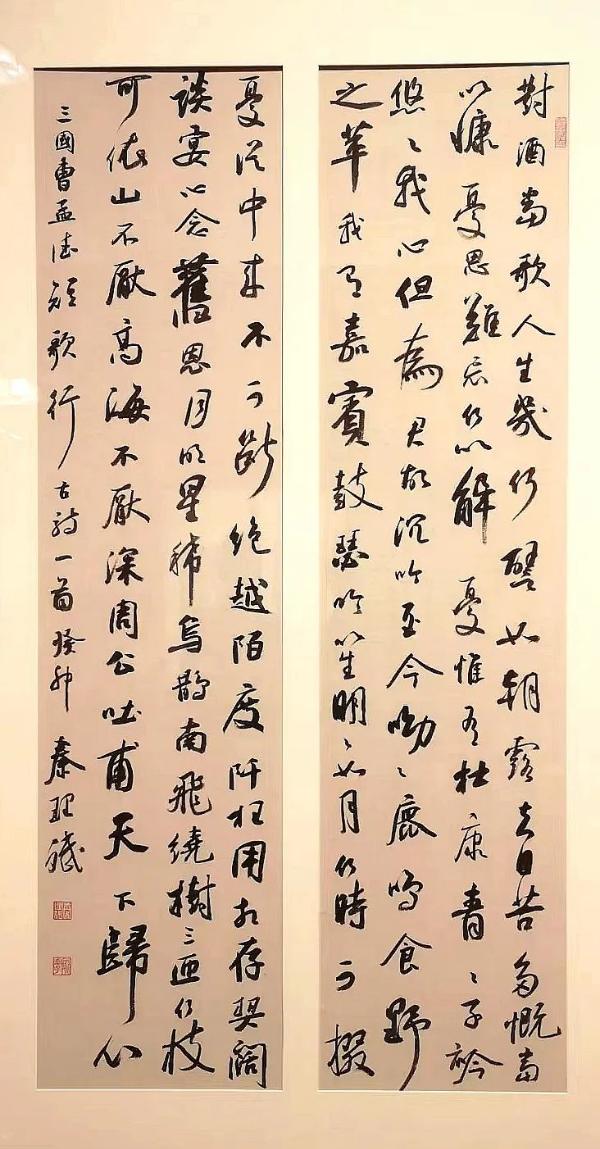 對酒當歌人生幾何譬如朝露去日苦多慨當
以慷憂思難忘何以解憂惟有杜康青〻子衿
悠〻我心但為君故沉吟至今呦〻鹿鳴食野
之苹我有嘉賓鼓瑟吹笙明〻如月何時可掇
憂從中來不可斷絕越陌度阡枉用相存契闊
談宴心念舊恩月明星稀烏鵲南飛繞樹三匝何枝
可依山不厭高海不厭深周公吐哺天下歸心
三國曹孟德短歌行古詩一首癸卯秦理斌